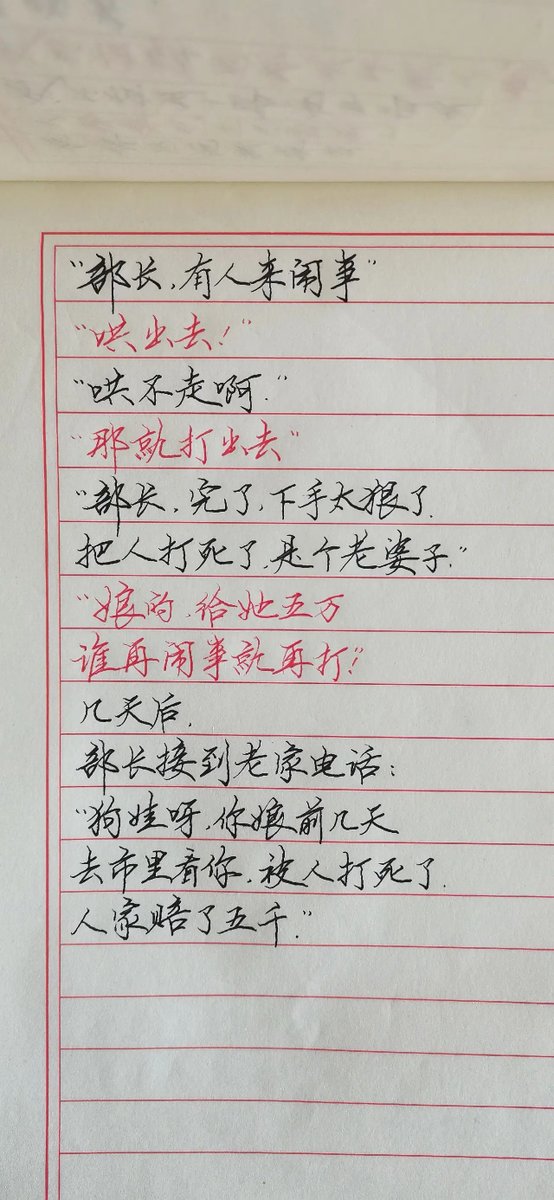 “部长，有人来闹事”
“哄出去！”
“哄不走啊.”
“那就打出去”
“部长，完了，下手太狠了.
把人打死了，是个老婆子.”
“娘的，给她五万
谁再闹事就再打！”
几天后，
部长接到老家电话：
“狗娃呀，你娘前几天
去市里看你，被人打死了.
人家赔了五千.”